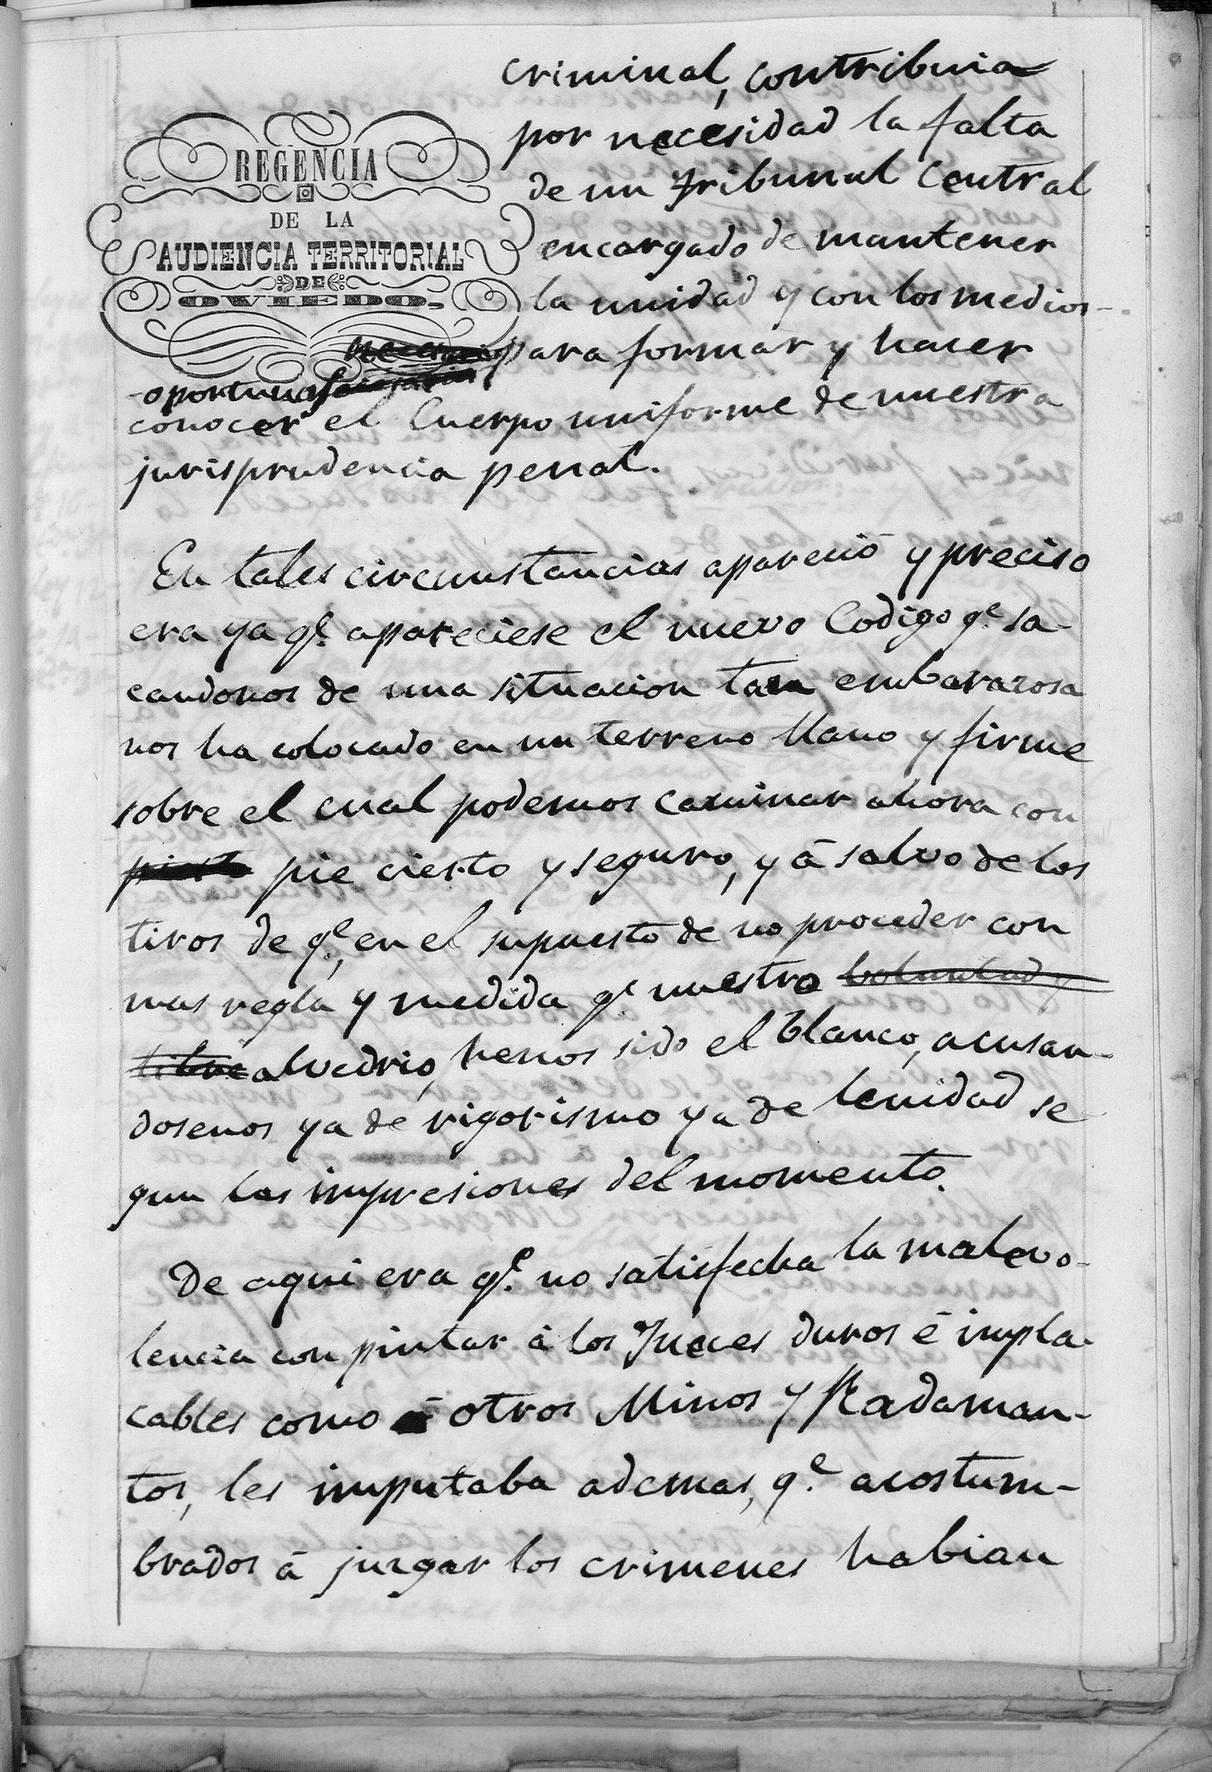 REGENCIA
DE LA
AUDIENCIA TERRITORIAL
DE
OVIEDO.
criminal, contribuia
por necesidad la falta
de un Tribunal Central
encargado de mantener
la unidad y con los medios
para formar y hacer
oportunos
conocer el Cuerpo uniforme de nuestra
jurisprudencia penal.
En tales circunstancias apareció y preciso
era ya qe. apareciese el nuevo Codigo qe. sa-
candonos de una situacion tan embarazosa
nos ha colocado en un terreno llano y firme
sobre el cual podemos caminar ahora con
pie cierto y seguro, y á salvo de los
tiros de qe., en el supuesto de no proceder con
mas regla y medida qe. nuestro voluntad y
libre alvedrio, hemos sido el blanco, acusan-
dosenos ya de rigorismo ya de lenidad se-
gun las impresiones del momento.
De aqui era qe. no satisfecha la malevo-
lencia con pintar á los Jueces duros é impla-
cables como á otros Minos y Radaman-
tos, les imputaba ademas, qe. acostum-
brados á juzgar los crimenes habian